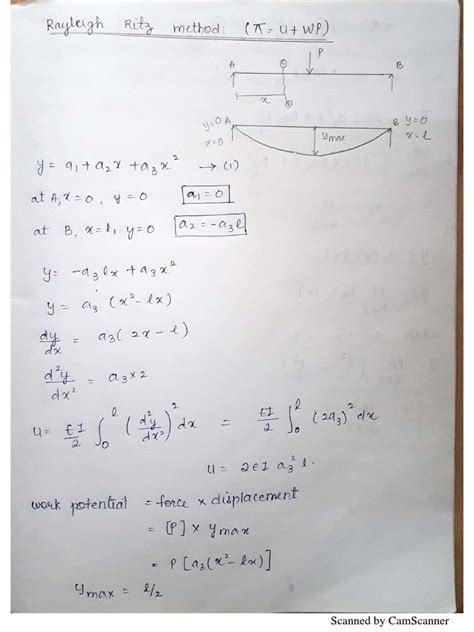 Rayleigh Ritz method: (π = U + WP)
P
A
B
x
y=0 A
x=0
B y=0
x=l
ymax
y = a₁ + a₂x + a₃x² → (1)
at A, x=0, y=0 a₁=0
at B, x=l, y=0 a₂=-a₃l
y = -a₃lx + a₃x²
y = a₃ (x² - lx)
dy/dx = a₃(2x - l)
d²y/dx² = a₃×2
U = EI/2 ∫₀ˡ (d²y/dx²)² dx = EI/2 ∫₀ˡ (2a₃)² dx
U = 2EI a₃² l.
work potential = force × displacement
= [P] × ymax
= P [a₃(x² - lx)]
ymax = l/2
Scanned by CamScanner